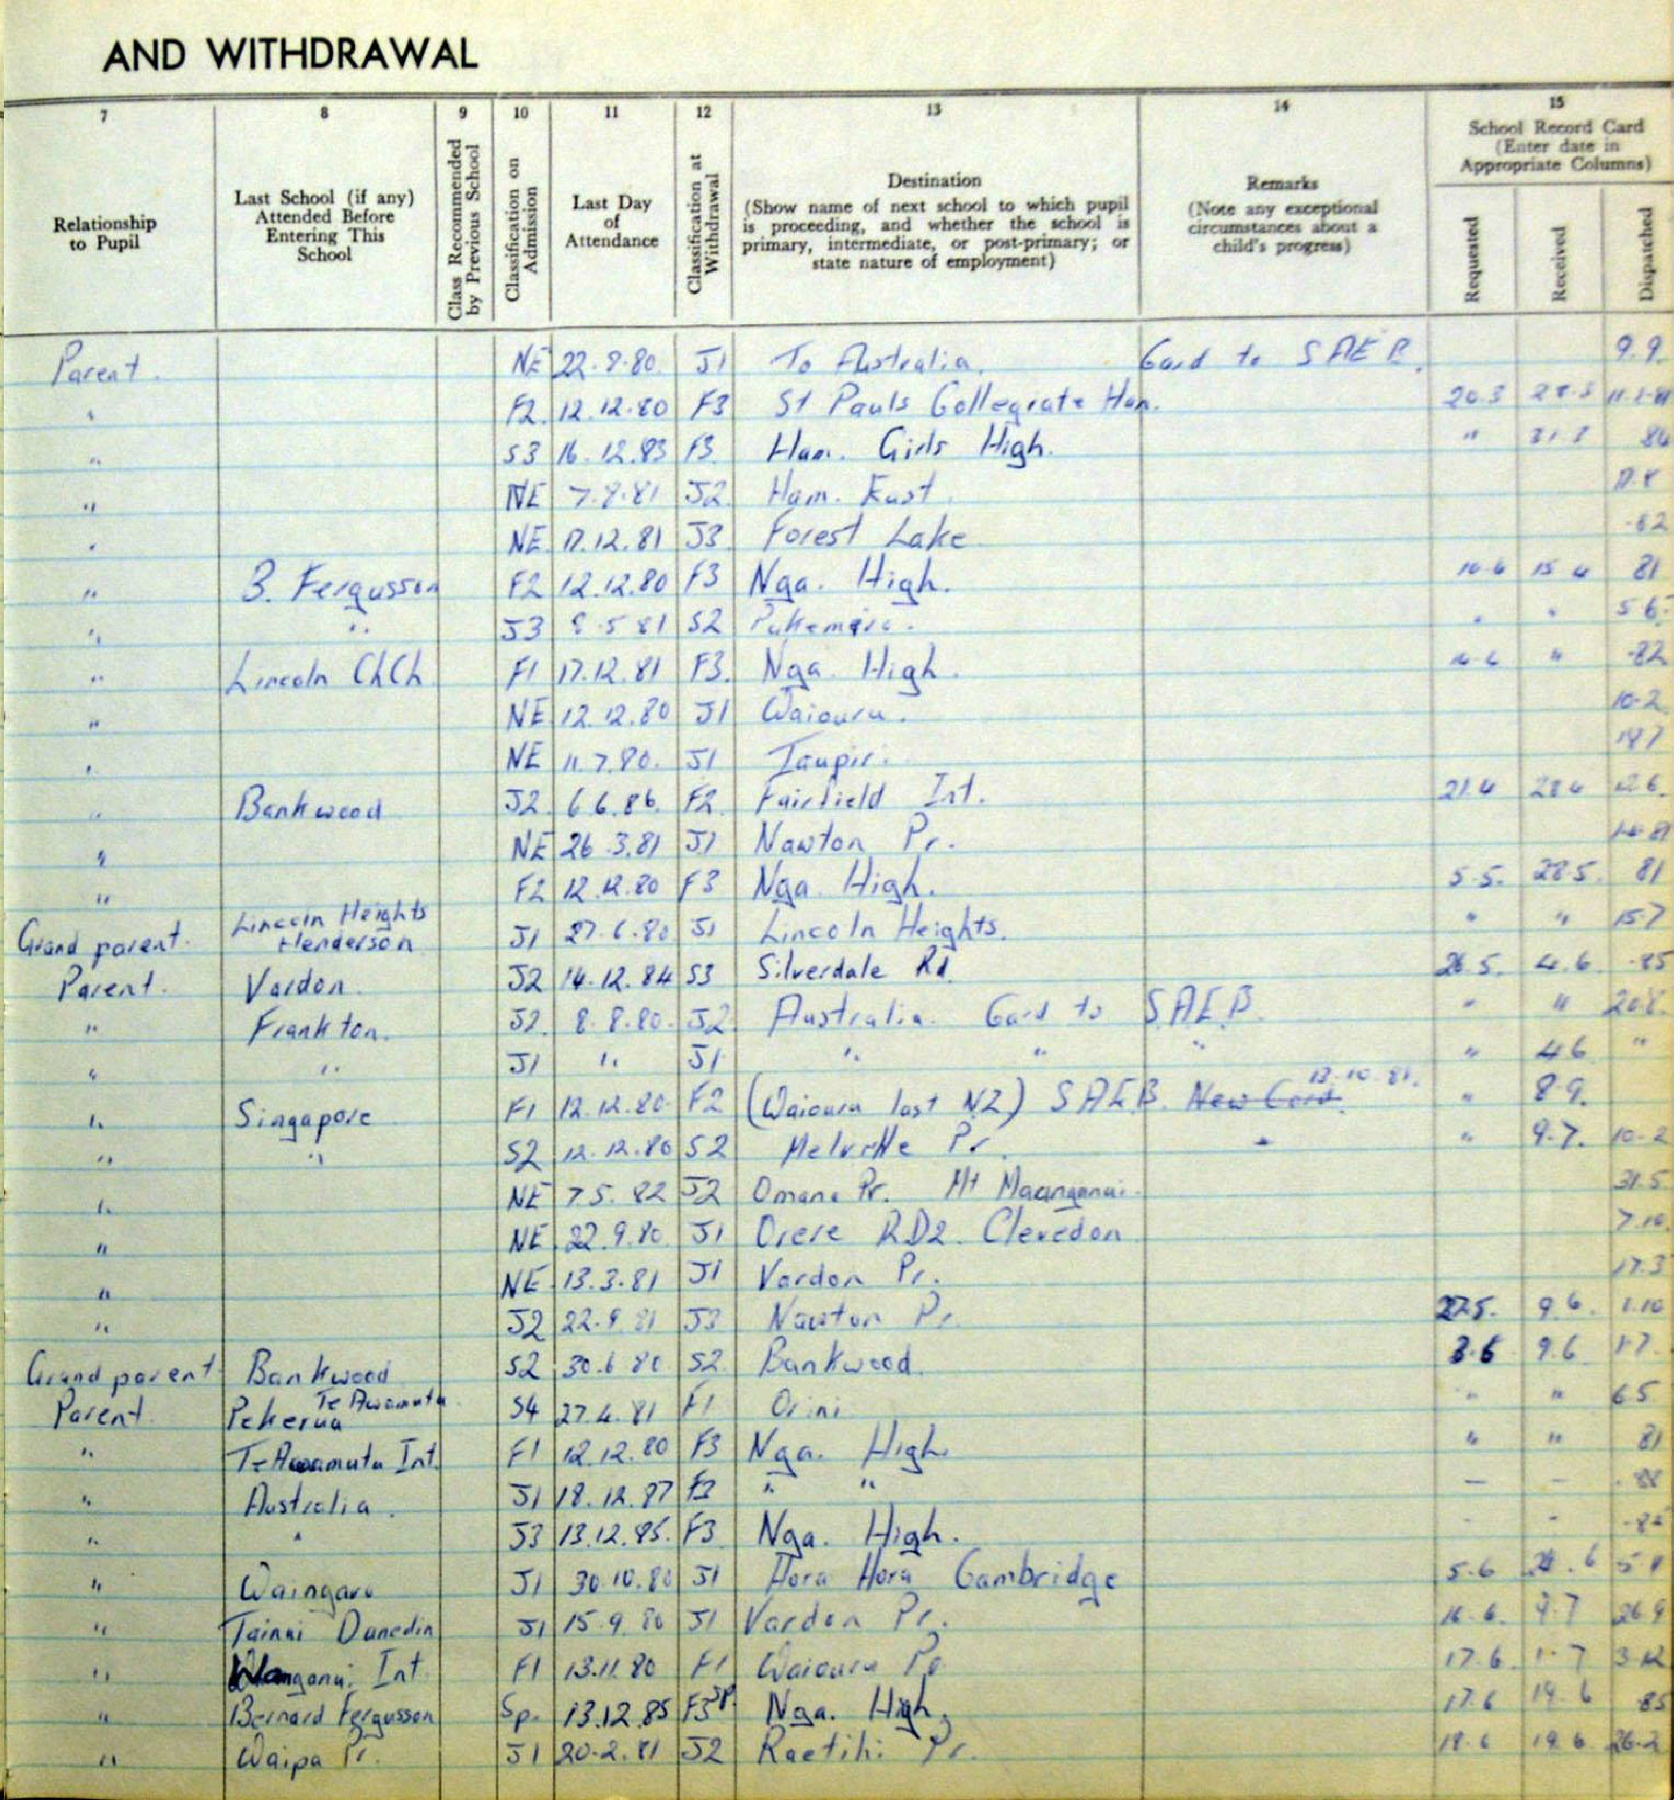 AND WITHDRAWAL
7 8 9 10 11 12 13 14 15
Relationship to Pupil
Last School (if any) Attended Before Entering This School
Class Recommended by Previous School
Classification on Admission
Last Day of Attendance
Classification at Withdrawal
Destination
(Show name of next school to which pupil is proceeding, and whether the school is primary, intermediate, or post-primary; or state nature of employment)
Remarks
(Note any exceptional circumstances about a child's progress)
School Record Card
(Enter date in Appropriate Columns)
Requested Received Dispatched
Parent. NE 22.8.80. J1 To Australia. Card to SAEB. 9.9.
" F2. 12.12.80 F3 St Pauls Collegiate Ham. 20.3
" S3 16.12.83 F3. Ham. Girls High. "
" NE 7.8.81 J2. Ham. East
" NE. 17.12.81 J3. Forest Lake
" B. Fergusson F2 12.12.80 F3 Nga. High. 81
" " J3 8.5.81 S2 Pukemiro. " " 5.6.
" Lincoln ChCh F1 17.12.81 F3. Nga. High. " -82
" NE 12.12.80 J1 Waiouru. 10-2
" NE 11.7.80. J1 Taupiri.
" Bankwood J2. 6.6.86. F2. Fairfield Int. 21.4 28.4
" NE 26.3.81 J1 Nawton Pr.
" F2 12.12.80 F3 Nga. High. 5.5. 28.5. 81
Grand parent. Lincoln Heights Henderson J1 27.6.80 J1 Lincoln Heights. " " 15.7
Parent. Vardon. J2 14.12.84 S3 Silverdale Rd 26.5. 4.6. -85
" Frankton. J2. 8.8.80. J2 Australia. Card to SAEB. " " 20.8.
" " J1 " J1 " " " " 4.6 "
" Singapore F1 12.12.80. F2 (Waiouru last NZ) SAEB. New Card. 13.10.81. " 8.9.
" " S2 12.12.80 S2 Melville Pr. " 9.7. 10-2
" NE 7.5.82 J2 Omanu Pr. Mt Maunganui. 31.5.
" NE. 22.9.80. J1 Orere RD2. Clevedon 7.10.
" NE 13.3.81 J1 Vardon Pr. 17.3
" J2 22.9.81 J3 Nawton Pr. 27.5. 9.6. 1.10
Grand parent Bankwood S2 30.6.80 S2 Bankwood. 3.6 9.6 1.7.
Parent. Pekerua Te Awamutu. S4 27.4.81 F1 Orini " " 6.5.
" Te Awamutu Int. F1 12.12.80 F3 Nga. High. " " 81
" Australia. J1 18.12.87 " " — — -88
" " J3 13.12.85. F3 Nga. High. - -
" Waingaro J1 30.10.80 J1 Hora Hora Cambridge 5.6
" Tainui Dunedin J1 15.9.80 J1 Vardon Pr. 16.6. 9.7 26.9
" Wanganui Int. F1 13.11.80 F1 Waiouru Pr. 17.6. 1.7 3.12
" Bernard Fergusson Sp. 13.12.85 F3 SP. Nga. High. 17.6 19.6 -85
" Waipa Pr. J1 20.2.81 J2 Raetihi Pr. 18.6 19.6 26.2